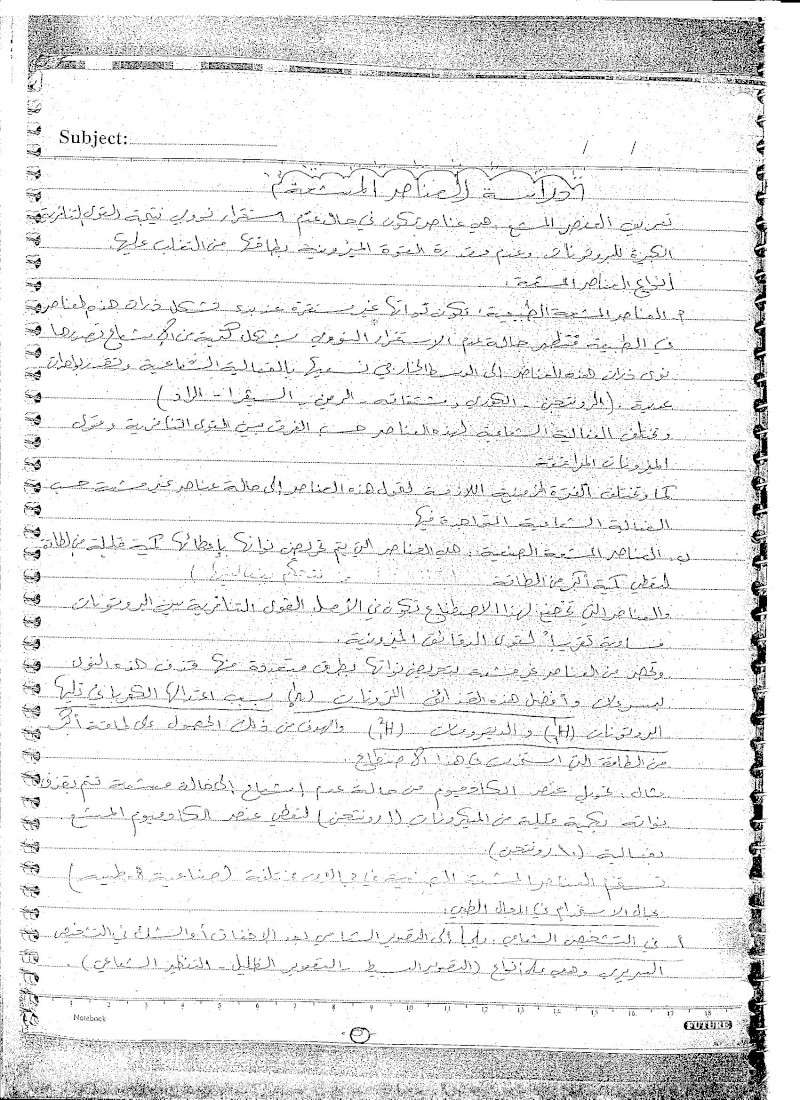 Subject:
/ /
دراسة العناصر المشعة
تعريف العنصر المشع: هي عناصر تكون في حالة عدم استقرار نووي نتيجة القوى التنافرية
الكبيرة للبروتونات وعدم مقدرة القوة الميزونية بطاقتها من التغلب عليها.
أنواع العناصر المشعة:
P- العناصر المشعة الطبيعية: تكون نواتها غير مستقرة عندما تتشكل ذرات هذه العناصر
في الطبيعة فتظهر حالة عدم الاستقرار النووي بشكل كمية من الإشعاع تصدرها
نوى ذرات هذه العناصر إلى الوسط الخارجي نسميها بالفعالية الشعاعية وتقدر بواحدات
عديدة. (الرونتجن - الكوري ومشتقاته - الرم - السيفرا - الراد)
وتختلف الفعالية الشعاعية لهذه العناصر حسب الفرق بين القوى التنافرية وقوى
الميزونات المرافقة
كما وتختلف الفترة الزمنية اللازمة لتحول هذه العناصر إلى حالة عناصر غير مشعة حسب
الفعالية الشعاعية المتواجدة فيها
ب- العناصر المشعة الصنعية: هي العناصر التي يتم تحريض نواتها بإعطائها كمية قليلة من الطاقة
لتعطي كمية أكبر من الطاقة نتحكم بفعاليتها)
والعناصر التي تخضع لهذا الاصطناع تكون في الأصل القوى التنافرية بين البروتونات
مساوية تقريباً لقوى الدقائق الميزونية.
وتحضر من العناصر غير مشعة بتحريض نواتها بطرق متعددة منها قذف هذه النوى
بنيوترونات وأفضل هذه القذائف النترونات بسبب اعتدالها الكهربائي تليها
البروتونات (¹₁H) والديترونات (²₁H) والهدف من ذلك الحصول على طاقة أكبر
من الطاقة التي استخدمت في هذا الاصطناع.
مثال: تحويل عنصر الكادميوم من حالة عدم إشعاع إلى حالة مشعة تتم بقذف
نواته بكمية قليلة من (1 رونتجن) لتعطي عنصر الكادميوم المشع
بفعالية (10 رونتجن).
تستخدم العناصر المشعة الصنعية في مجالات مختلفة (صناعية - طبية)
مجال الاستخدام في المجال الطبي:
أ- في التشخيص الشعاعي: يلجأ إلى التصوير الشعاعي بعد الإخفاق أو الشك في التشخيص
السريري وهي على أنواع (التصوير البسيط - التصوير الظليل - التنظير الشعاعي).
1 2 3 4 5 6 7 8 9 10 11 12 13 14 15 16 17 18
Notebook
FUTURE